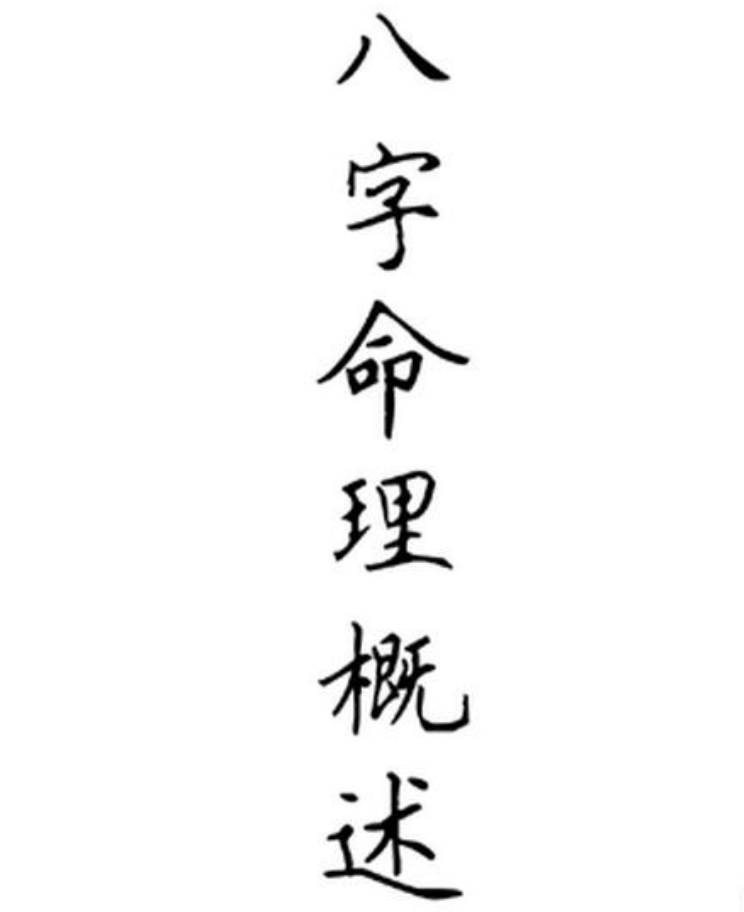 八字命理概述